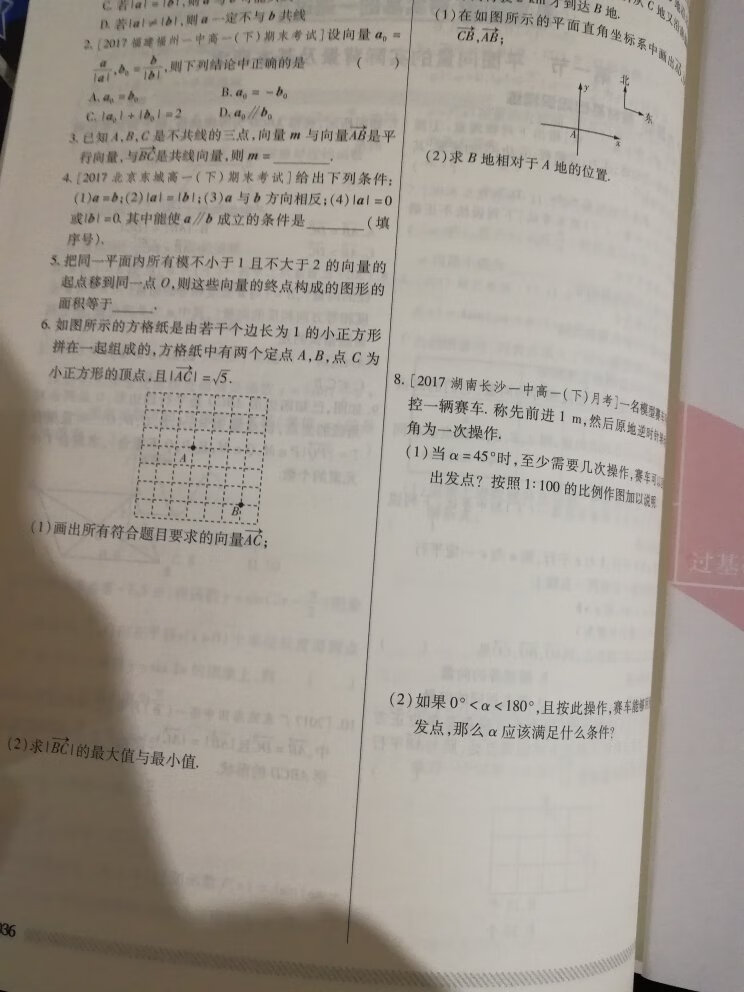 C. 若|a|=|b|,则a与b可能共线
D. 若|a|≠|b|,则a一定不与b共线
2. [2017 福建福州一中高一(下)期末考试]设向量a₀=
a/|a|,b₀=b/|b|,则下列结论中正确的是 ( )
A. a₀=b₀ B. a₀=-b₀
C. |a₀|+|b₀|=2 D. a₀∥b₀
3. 已知A,B,C是不共线的三点,向量m与向量AB→是平
行向量,与BC→是共线向量,则m=______.
4. [2017 北京东城高一(下)期末考试]给出下列条件:
(1)a=b;(2)|a|=|b|;(3)a与b方向相反;(4)|a|=0
或|b|=0. 其中能使a∥b成立的条件是______(填
序号).
5. 把同一平面内所有模不小于1且不大于2的向量的
起点移到同一点O,则这些向量的终点构成的图形的
面积等于______.
6. 如图所示的方格纸是由若干个边长为1的小正方形
拼在一起组成的,方格纸中有两个定点A,B,点C为
小正方形的顶点,且|AC→|=√5.
A
B
(1)画出所有符合题目要求的向量AC→;
(2)求|BC→|的最大值与最小值.
036
km才到达B地.
从C地又沿
(1)在如图所示的平面直角坐标系中画出
CB→,AB→;
y
北
东
A
x
(2)求B地相对于A地的位置.
8. [2017 湖南长沙一中高一(下)月考]一名模型赛车
控一辆赛车. 称先前进1 m,然后原地逆时针
角为一次操作.
(1)当α=45°时,至少需要几次操作,赛车可以
出发点? 按照1:100的比例作图加以说明.
(2)如果0°<α<180°,且按此操作,赛车能够
发点,那么α应该满足什么条件?
过基